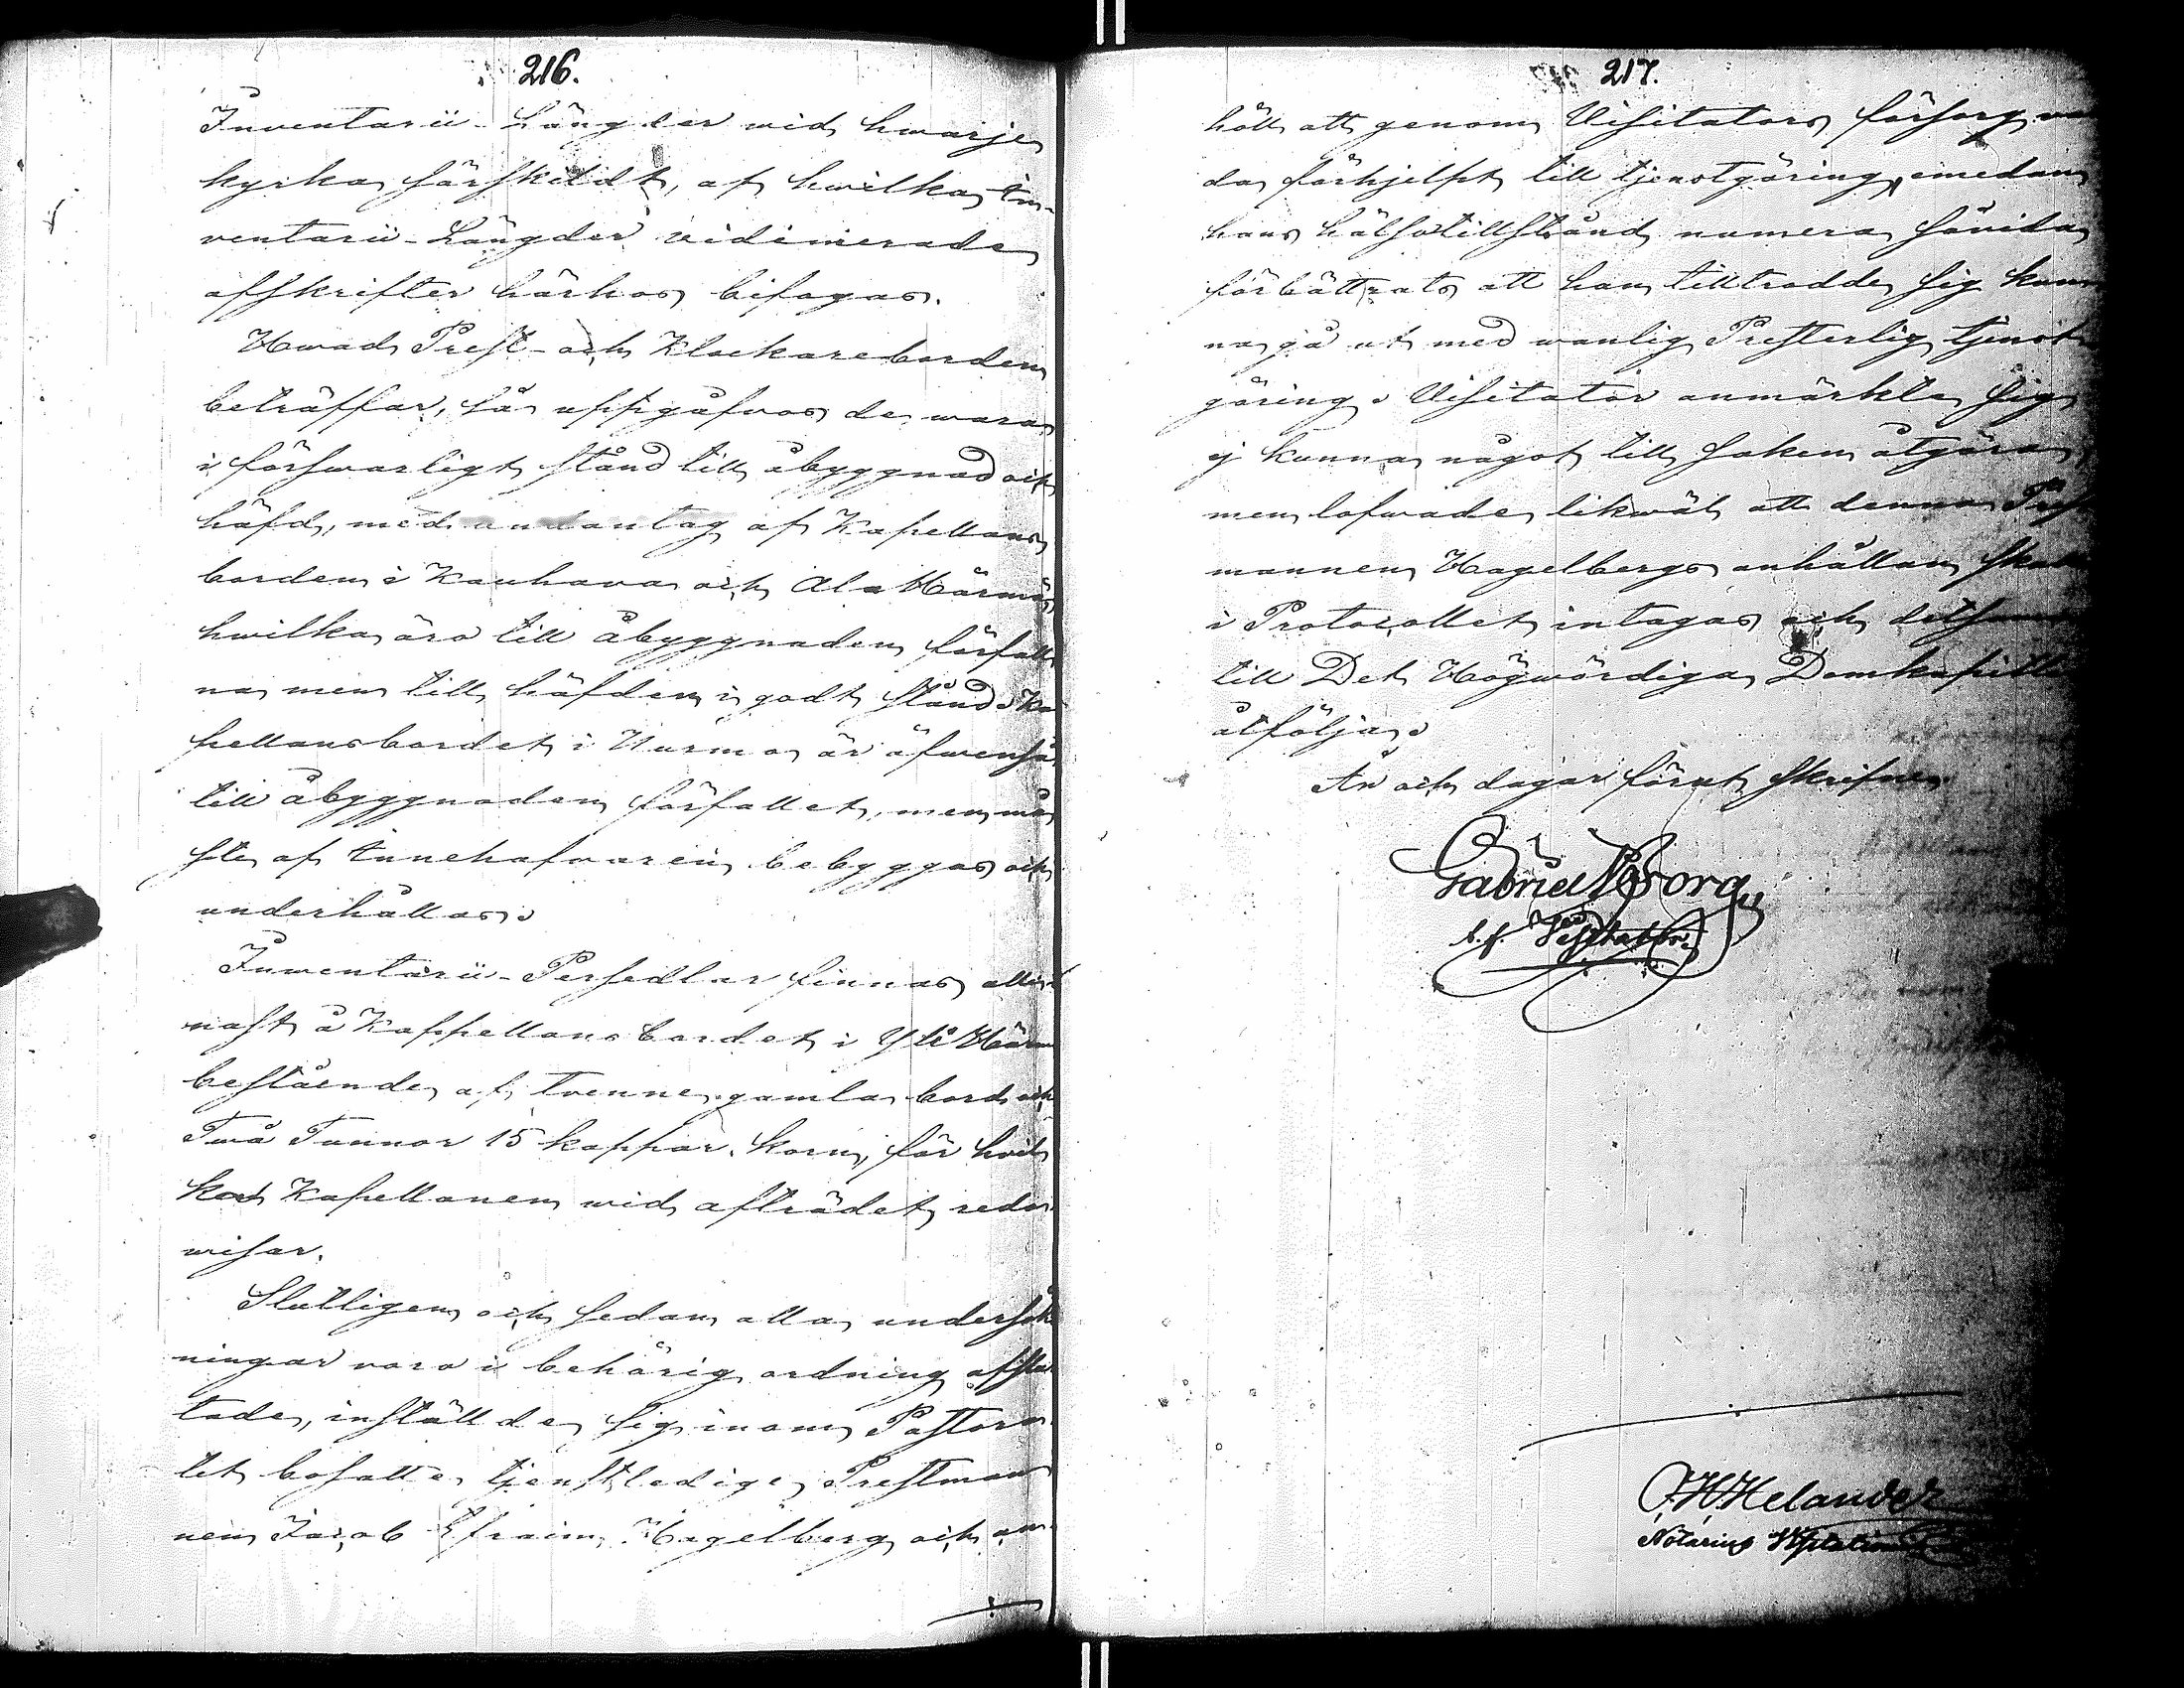 216.
Inventarii-Längder wid hwarje
kyrka särskildt, af hwilka In-
ventarii-Längder vidimerade
afskrifter härhos bifogas.
Hwad Prest- och Klockareborden
beträffar, så uppgåfvos de wara
i förswarligt stånd till åbyggnad och
häfd, med undantag af Kapellans
borden i Kauhava och Ala Härmä,
hwilka äro till åbyggnaden förfall
na men till häfden i godt stånd. Ka
pellansbordet i Kurmo är äfwenså
till åbyggnaden förfallet, men må
ste af innehafwaren bebyggas och
underhållas.
Inwentarii-Persedlar finnas alle
nast å Kappellansbordet i Yli Härm
bestående af tvenne gamla bord och
Twå Tunnor 15 kappar korn, för hvil
ket Kapellanen wid afträdet redo
wisar.
Slutligen och sedan alla undersök
ningar voro i behörig ordning afslu
tade, inställde sig inom Pastora
tet bosatte tjenstledige Prestman
nen Jacob Efraim Hagelberg och an-
217.
höll att genom Visitators försorg wa
da förhjelpt till tjenstgöring, emedan
hans hälsotillstånd numera såvida
förbättrats att han tilltrodde sig kun
na gå ut med wanlig Presterlig tjenst
göring. Visitator anmärkte sig
ej kunna något till saken åtgöra,
men lofwade likwäl att denna Prest
mannen Hagelbergs anhållan skall
i Protocollet intagas och detsamma
till Det Högwördiga Domkapitlet
åtfölja.
År och dagar förut skrifne.
Gabriel Borg
t.f. Visitator
Helander
Notarius Visitationis